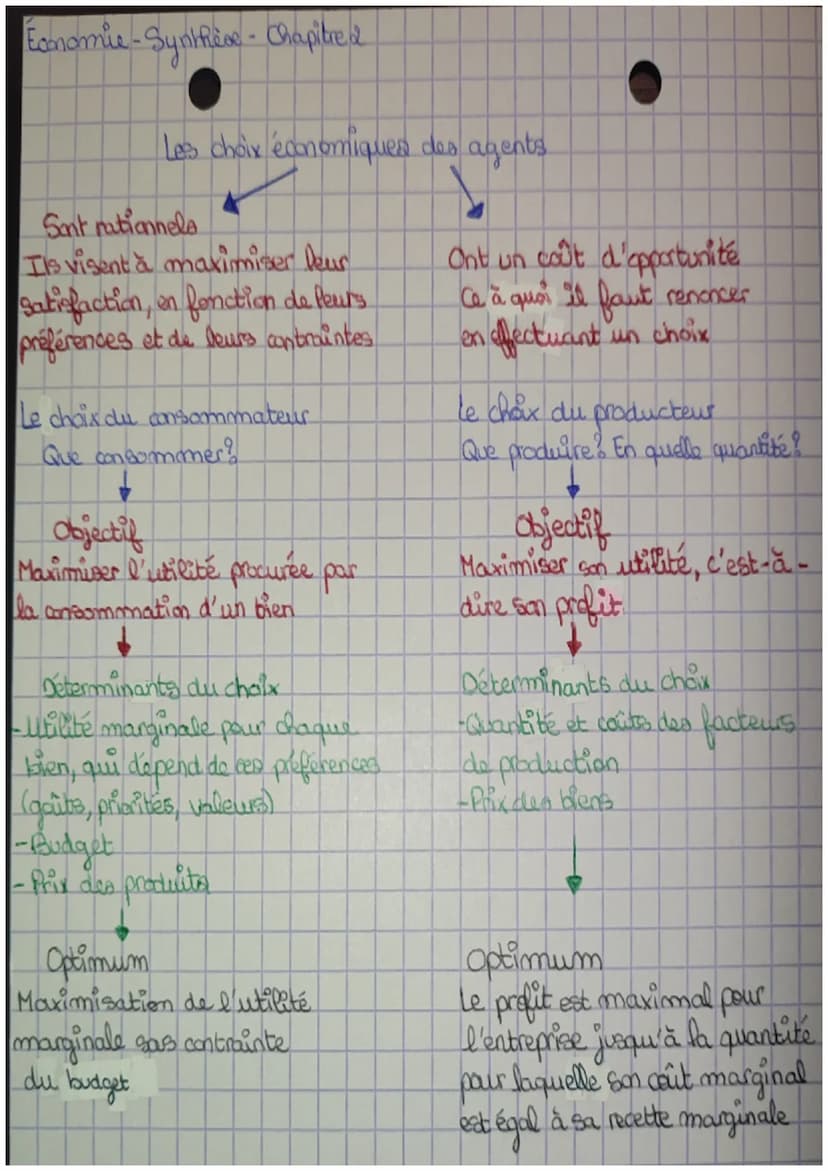 Économie - Synthèse - Chapitre 2
Les choix économiques des agents
Sont rationnels
Ils visent à maximiser leur
satisfaction, en fonction de leurs
préférences et de leurs contraintes
Ont un coût d'opportunité
Ce à quoi il faut renoncer
en effectuant un choix
Le choix du consommateur
Que consommer?
Objectif
Maximiser l'utilité procurée par
la consommation d'un bien
Déterminants du choix
-Utilité marginale pour chaque
bien, qui dépend de ces préférences
(goûts, priorités, valeurs)
-Budget
- Prix des produits
Optimum
Maximisation de l'utilité
marginale sas contrainte
du budget
Le choix du producteur
Que produire? En quelle quantité?
Objectif
Maximiser son utilité, c'est-à-
dire son profit
Déterminants du choix
-Quantité et coûts des facteurs
de production
-Prix des biens
Optimum
Le profit est maximal pour
l'entreprise jusqu'à la quantité
pour laquelle son coût marginal
est égal à sa recette marginale